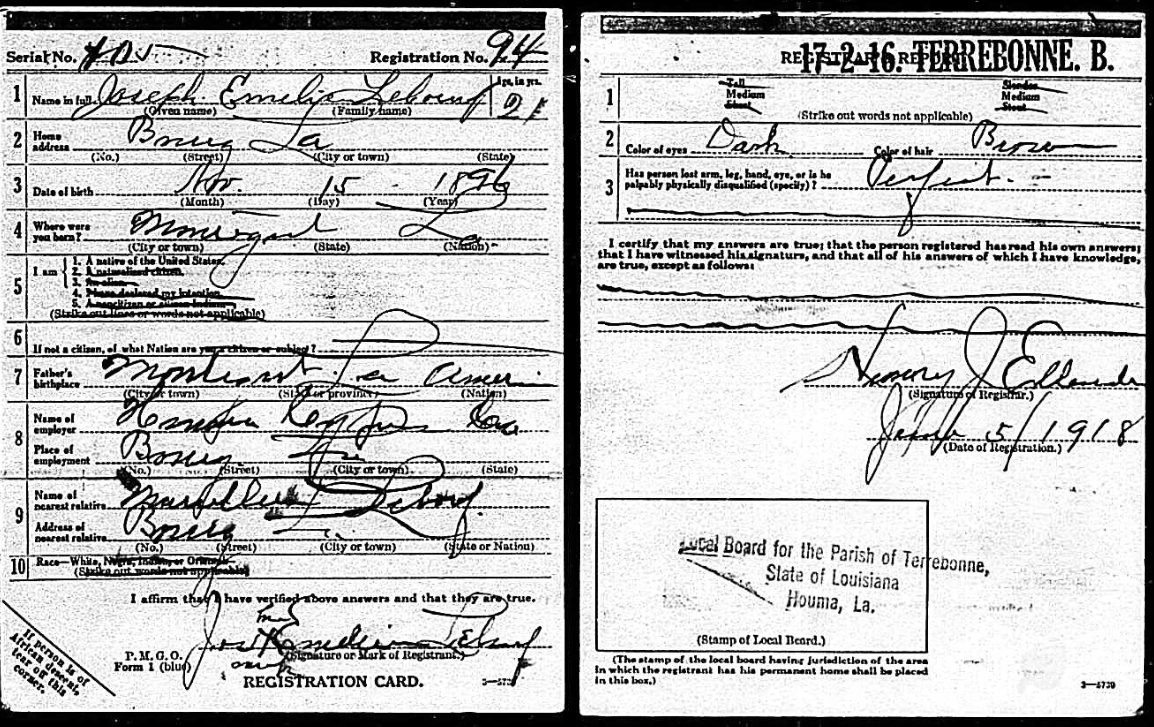 Serial No.
Registration No. 94
1 Name in full Joseph Emelie Lebouf Age, in yrs. 21
(Given name) (Family name)
2 Home address Bourg La
(No.) (Street) (City or town) (State)
3 Date of birth Nov. 15 1896
(Month) (Day) (Year)
4 Where were you born? Montegut La
(City or town) (State) (Nation)
5 I am
1. A native of the United States.
2. A naturalized citizen.
3. An alien.
4. I have declared my intention.
5. A noncitizen or citizen Indian.
(Strike out lines or words not applicable)
6 If not a citizen, of what Nation are you a citizen or subject?
7 Father's birthplace Montegut La Ameri
(City or town) (State or province) (Nation)
8 Name of employer
Place of employment Bourg La
(No.) (Street) (City or town) (State)
9 Name of nearest relative Lebouf
Address of nearest relative Bourg La
(No.) (Street) (City or town) (State or Nation)
10 Race—White, Negro, Indian, or Oriental
(Strike out words not applicable)
I affirm that I have verified above answers and that they are true.
Jos Lebouf
P. M. G. O.
Form 1 (blue)
(Signature or Mark of Registrant.)
REGISTRATION CARD.
If person is of African descent, tear off this corner.
REGISTRAR'S REPORT
17-2-16. TERREBONNE. B.
1 Tall Medium Stout Slender Medium Stout
(Strike out words not applicable)
2 Color of eyes Dark Color of hair Brown
3 Has person lost arm, leg, hand, eye, or is he
palpably physically disqualified (specify)? Perfect.
I certify that my answers are true; that the person registered has read his own answers;
that I have witnessed his signature, and that all of his answers of which I have knowledge,
are true, except as follows:
J Ellender
(Signature of Registrar.)
June 5/1918
(Date of Registration.)
Local Board for the Parish of Terrebonne,
State of Louisiana
Houma, La.
(Stamp of Local Board.)
(The stamp of the local board having jurisdiction of the area
in which the registrant has his permanent home shall be placed
in this box.)
3—5739